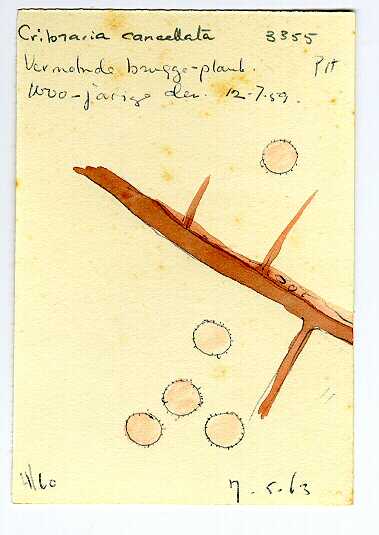 Cribraria cancellata 3355
Vermolmde brugge-plank. PH
1000-jarige den. 12-7-59.
4/60 7.5.63